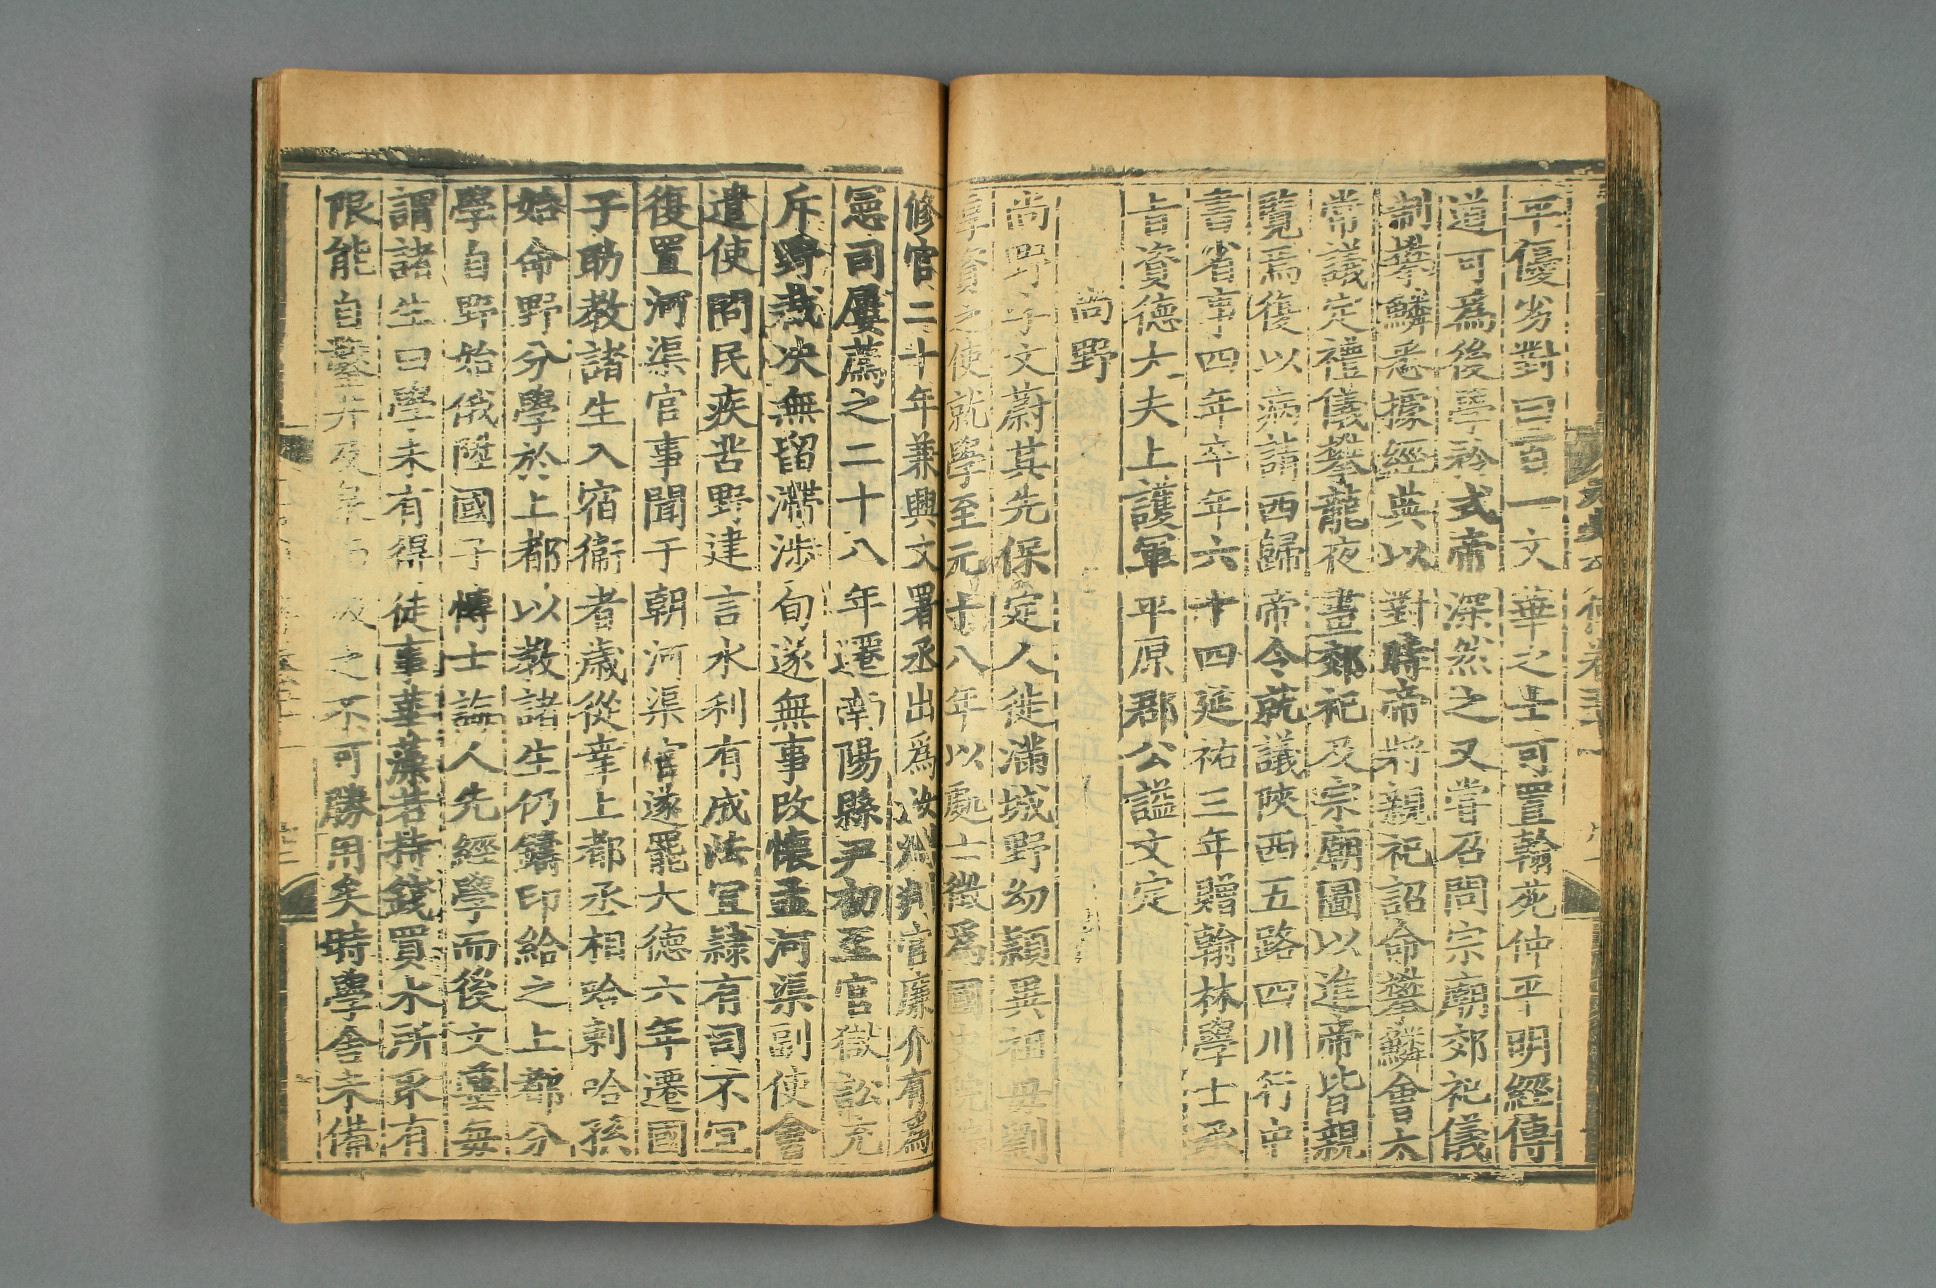 平優劣對曰百一文華之士可置翰苑仲平明經傳
道可爲後學矜式帝深然之又嘗召問宗廟郊祀儀
制攀鱗悉據經典以對時帝將親祀詔命攀鱗會太
常議定禮儀攀龍夜畫郊祀及宗廟圖以進帝皆親
覽焉復以病請西歸帝令就議陝西五路四川行中
書省事四年卒年六十四延祐三年贈翰林學士承
旨資德大夫上護軍平原郡公諡文定
尚野
尚野字文蔚其先保定人徙滿城野幼穎異祖母劉
厚資之使就學至元十八年以處士徵爲國史院
修官二十年兼興文署丞出爲汝州判官廉介有爲
憲司屢薦之二十八年遷南陽縣尹初至官獄訟充
斥野裁決無留滯涉旬遂無事改懷孟河渠副使會
遣使問民疾苦野建言水利有成法宜隸有司不宜
復置河渠官事聞于朝河渠官遂罷大德六年遷國
子助教諸生入宿衞者歲從幸上都丞相哈剌哈孫
始命野分學於上都以教諸生仍鑄印給之上都分
學自野始俄陞國子博士誨人先經學而後文藝每
謂諸生曰學未有得徒事華藻若持錢買水所取有
限能自鑿井及之不可勝用矣時學舍未備